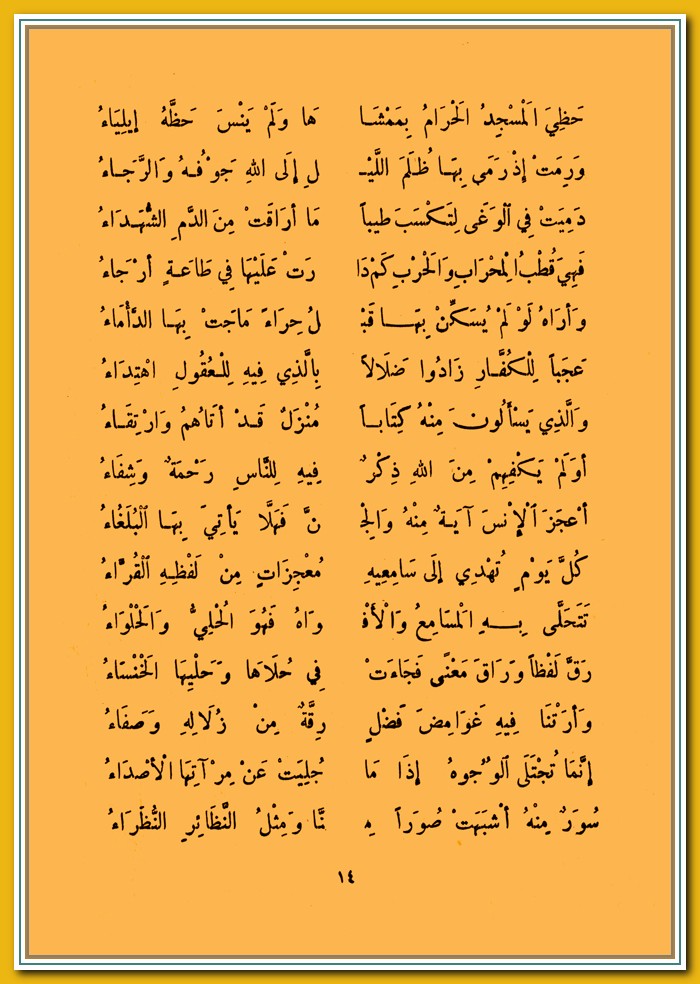 حَظِيَ الْمَسْجِدُ الْحَرَامُ بِمَمْشَـا هَا وَلَمْ يَنْسَ حَظَّهُ إِيلِيَاءُ
وَرِمَتْ إِذْ رَمَى بِهَـا ظُـلَمَ اللَّيْـ لِ إِلَى اللهِ جَوْفُـهُ وَالرَّجَـاءُ
دَمِيَتْ فِي الْوَغَى لِتَكْسَبَ طِيباً مَا أَرَاقَتْ مِنَ الدَّمِ الشُّهَـدَاءُ
فَهِيَ قُطْبُ الْمِحْرَابِ وَالْحَرْبِ كَمْ دَا رَتْ عَلَيْهَا فِي طَاعَـةٍ أَرْجَاءُ
وَأَرَاهُ لَوْ لَمْ يُسَكِّنْ بِهَـــا قَبْـ لُ حِرَاءً مَاجَتْ بِهَـا الدَّأْمَاءُ
عَجَباً لِلْكُفَّـارِ زَادُوا ضَلَالاً بِالَّذِي فِيهِ لِلْـعُقُولِ اهْتِدَاءُ
وَالَّذِي يَسْأَلُونَ مِنْهُ كِتَابـاً مُنْزَلٌ قَـدْ أَتَاهُمُ وَارْتِقَـاءُ
أَوَلَمْ يَكْفِهِمْ مِنَ اللهِ ذِكْرٌ فِيهِ لِلنَّاسِ رَحْمَةٌ وَشِفَاءُ
أَعْجَزَ الْإِنْسَ آيَـةٌ مِنْهُ وَالْجِـ نَّ فَهَلَّا يَأْتِي بِهَـا الْبُلَغَاءُ
كُلَّ يَوْمٍ تُهْدِي إِلَى سَامِعِيهِ مُعْجِزَاتٍ مِنْ لَفْظِـهِ الْقُرَّاءُ
تَتَحَلَّى بِـــهِ الْمَسَامِعُ وَالْأَفْـ وَاهُ فَهُوَ الْحُلِيُّ وَالْحَلْوَاءُ
رَقَّ لَفْظاً وَرَاقَ مَعْنًى فَجَاءَتْ فِي حُلَاهَا وَحَلْيِهَا الْخَنْسَاءُ
وَأَرَتْنَا فِيهِ غَوَامِضَ فَضْلٍ رِقَّةٌ مِنْ زُلَالِهِ وَصَفَاءُ
إِنَّمَا تُجْتَلَى الْوُجُوهُ إِذَا مَا جُلِيَتْ عَنْ مِرْآتِهَا الْأَصْدَاءُ
سُوَرٌ مِنْهُ أَشْبَهَتْ صُوَراً مِـ نَّا وَمِثْلُ النَّظَائِرِ النُّظَرَاءُ
١٤